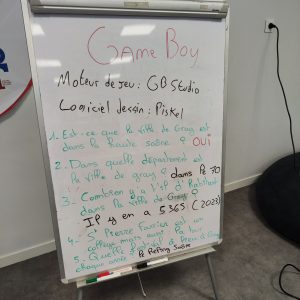 Game Boy
Moteur de jeu : GB Studio
Logiciel dessin : Piskel
1. Est-ce que la ville de Gray est
dans la haute saône ? OUI
2. Dans quelle département est
la ville de gray ? dans le 70
3. Combien y a t'il d'habitant
dans la ville de Gray ?
IP y en a 5365 (2023)
4. St Pierre Fourier est un
collège mais aussi
5. Quelle
chaque année ? le Saône
R